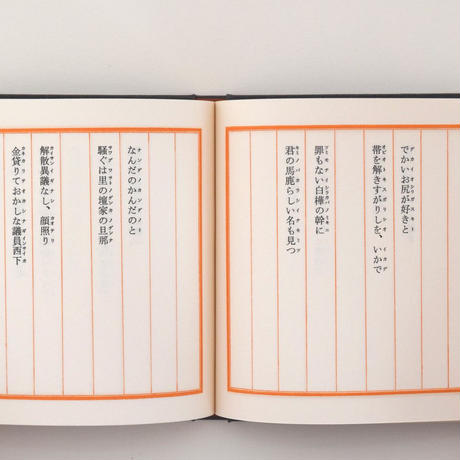 でかいお尻が好きと
帯を解きすがりしを、いかで
罪もない白樺の幹に
君の馬鹿らしい名も見つ
なんだのかんだのと
騒ぐは里の壇家の旦那
解散異議なし、顔照り
金貸りておかしな議員西下